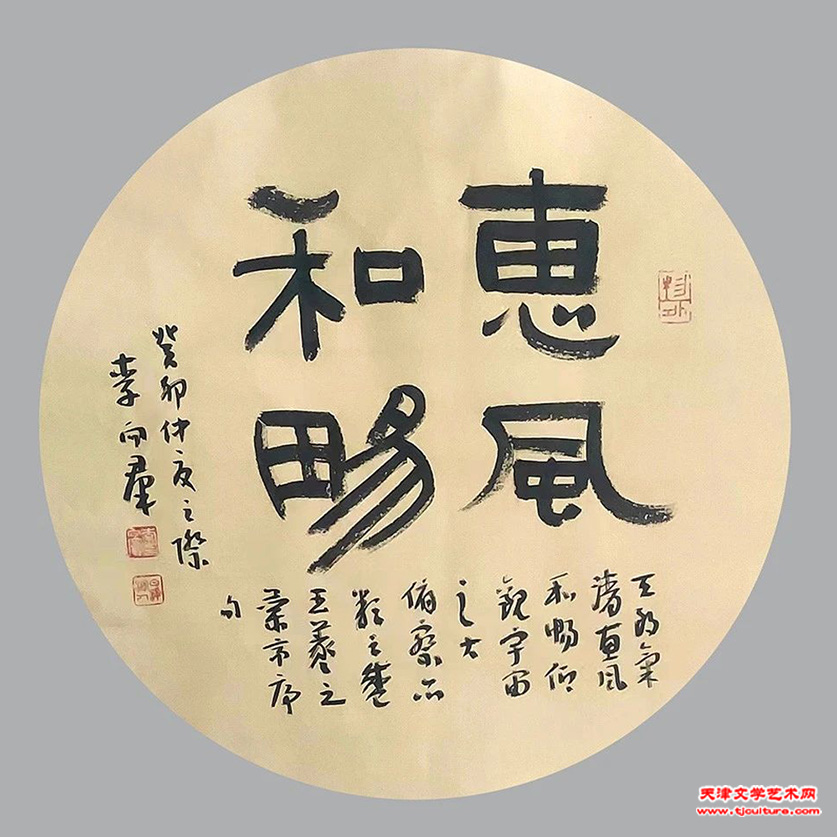 惠風
和暢
天朗氣
清惠風
和暢仰
觀宇宙
之大
俯察品
類之盛
王羲之
蘭亭序
句
癸卯仲夏之際
李向群
天津文学艺术网
www.tjculture.com